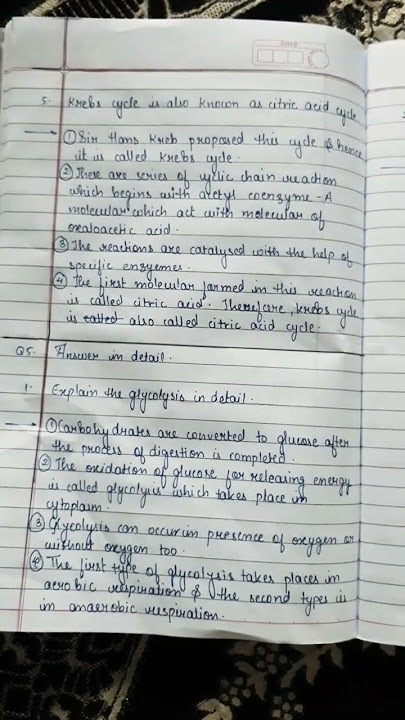 5. Krebs cycle is also known as citric acid cycle
→ ① Sir Hans Kreb proposed this cycle & hence
it is called Krebs cycle.
② There are series of cyclic chain reaction
which begins with acetyl coenzyme-A
molecular which act with molecular of
oxaloacetic acid.
③ The reactions are catalysed with the help of
specific enzymes.
④ The first molecular formed in this reaction
is called citric acid. Therefore, krebs cycle
is called also called citric acid cycle.
Q5. Answer in detail.
1. Explain the glycolysis in detail.
→ ① Carbohydrates are converted to glucose after
the process of digestion is completed.
② The oxidation of glucose for releasing energy
is called glycolysis which takes place in
cytoplasm.
③ Glycolysis can occur in presence of oxygen or
without oxygen too.
④ The first type of glycolysis takes places in
aerobic respiration & the second types is
in anaerobic respiration.